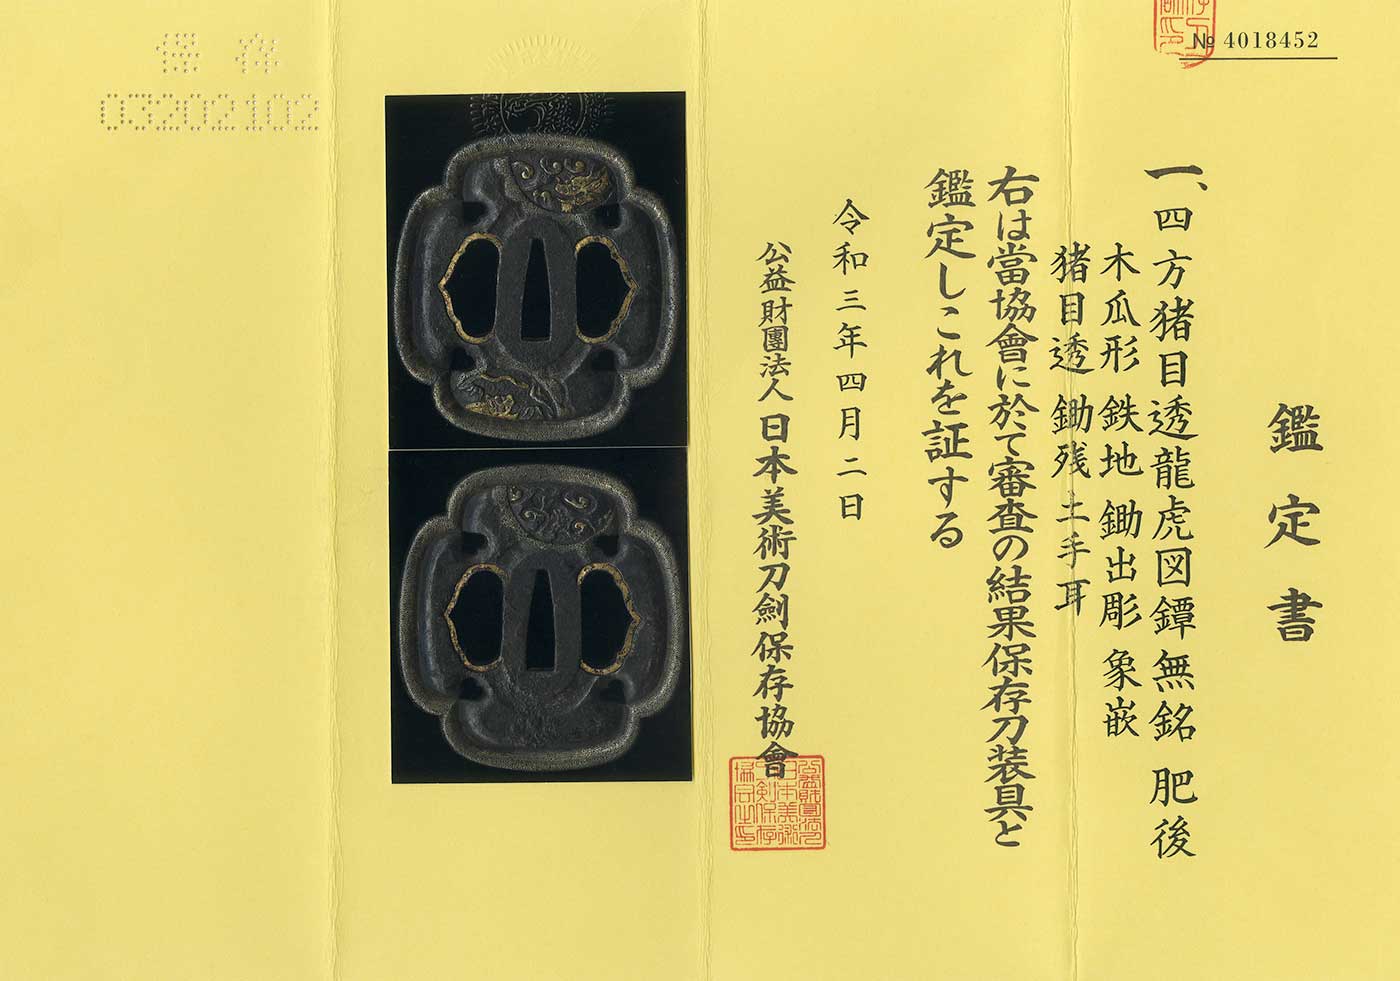 № 4018452
鑑定書
一、四方猪目透龍虎図鐔 無銘 肥後
木瓜形 鉄地 鋤出彫 象嵌
猪目透 鋤残土手耳
右は當協會に於て審査の結果保存刀装具と
鑑定しこれを証する
令和三年四月二日
公益財團法人 日本美術刀劍保存協會
保存
03202102